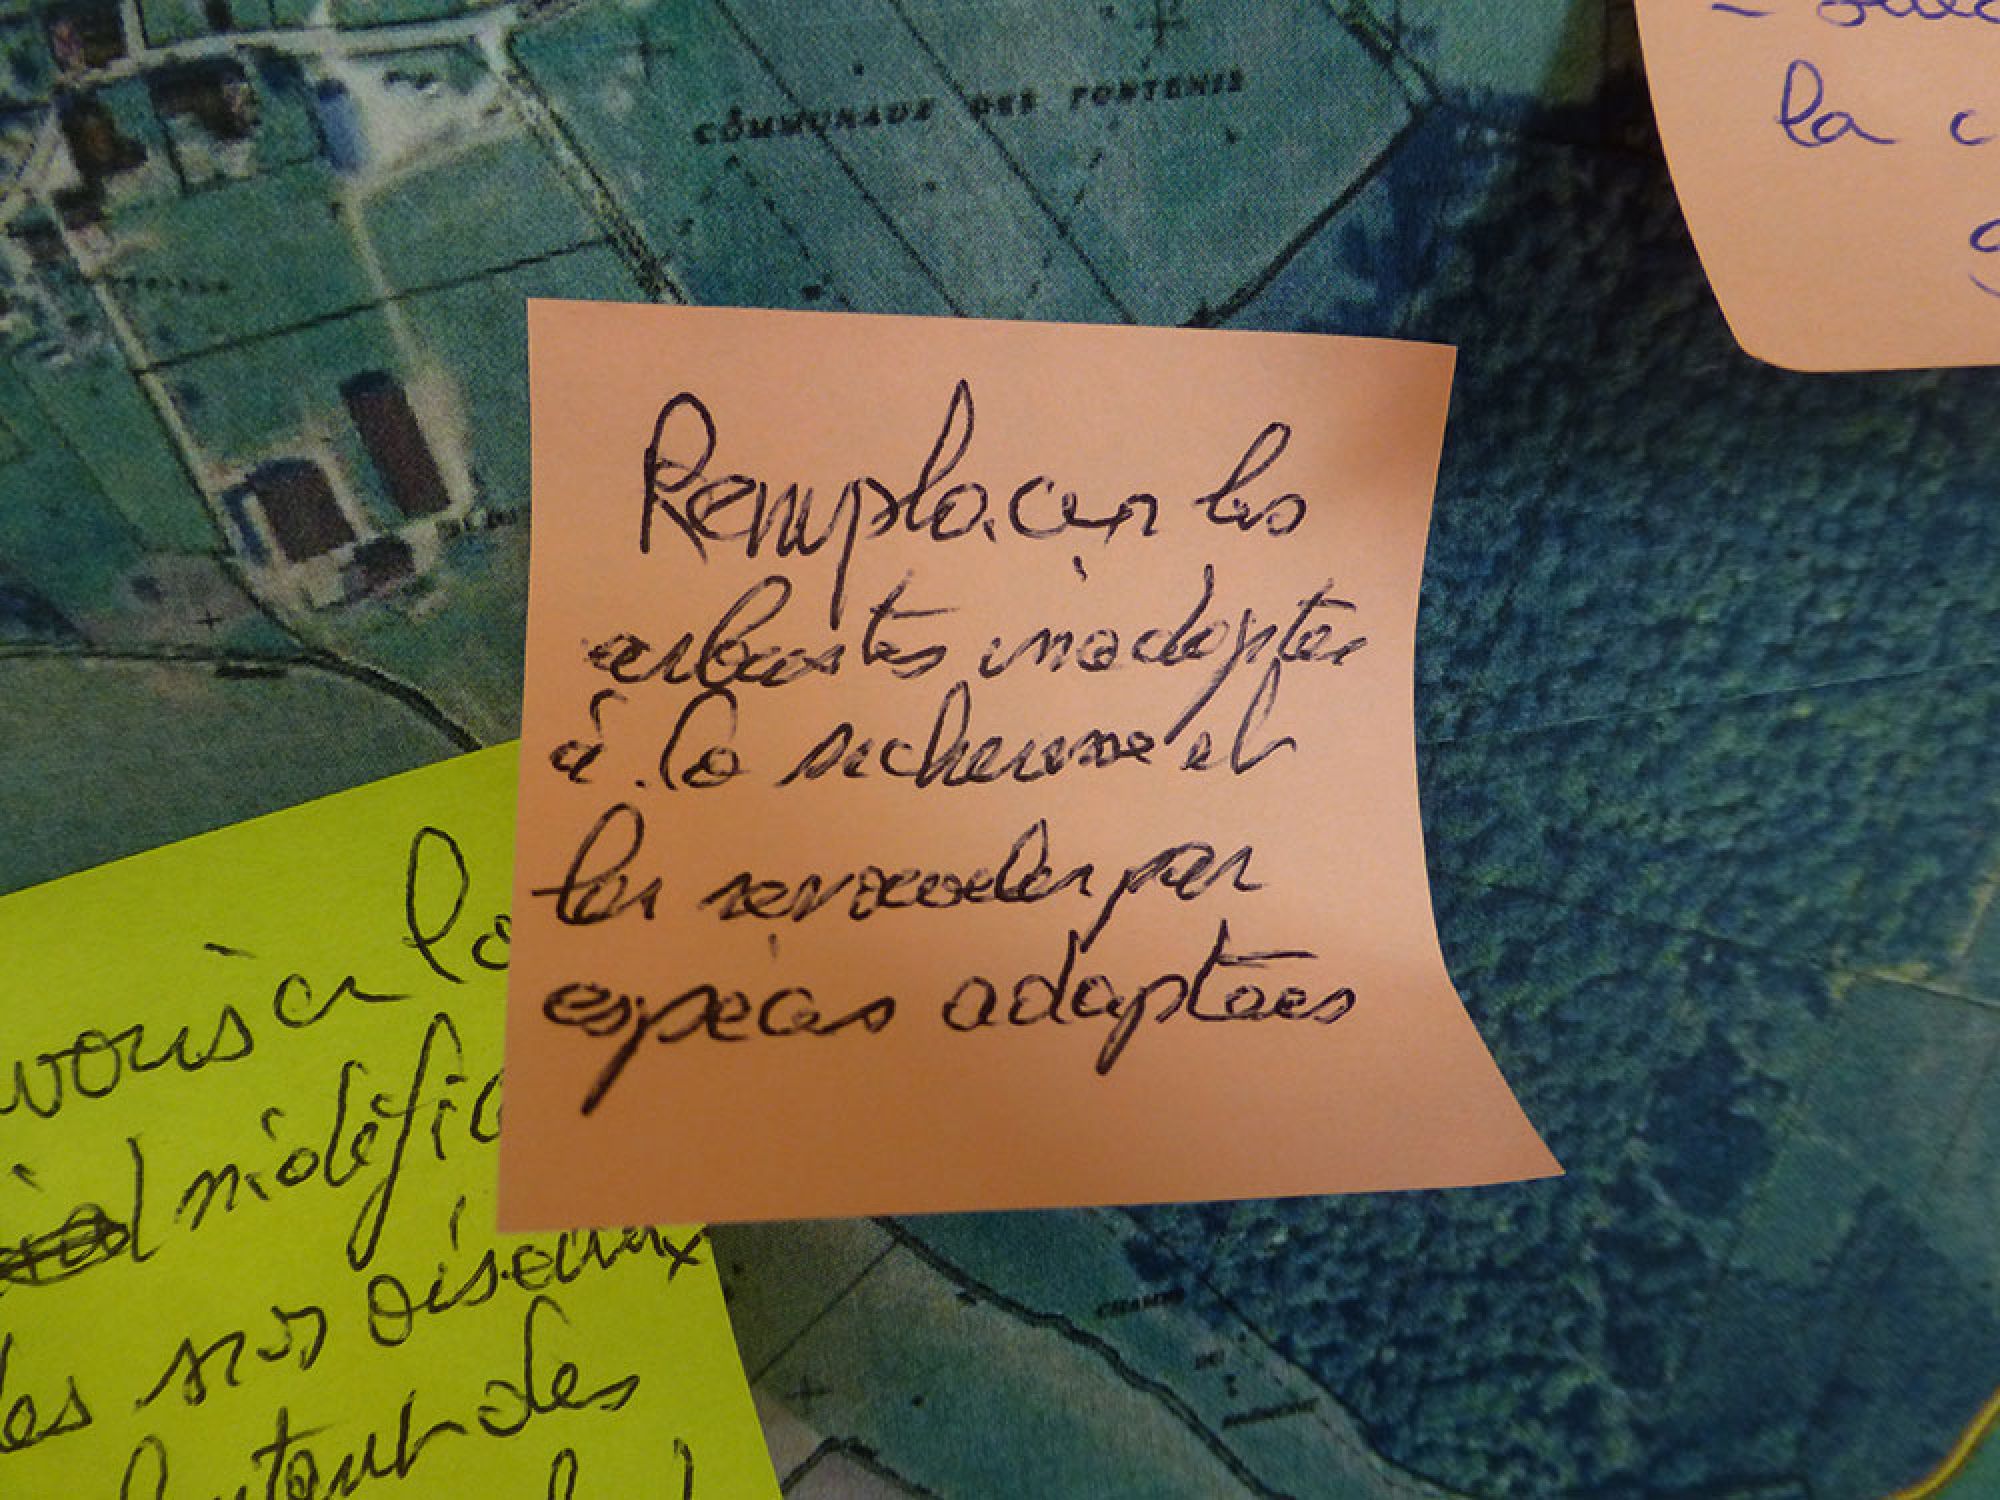 COMMUNAUX DES FORTENIS
la c
Remplacer les
arbustes inadaptés
à la sécheresse et
les remplacer par
espèces adaptées
voriser la
nidific
les sur oiseaux
autour des